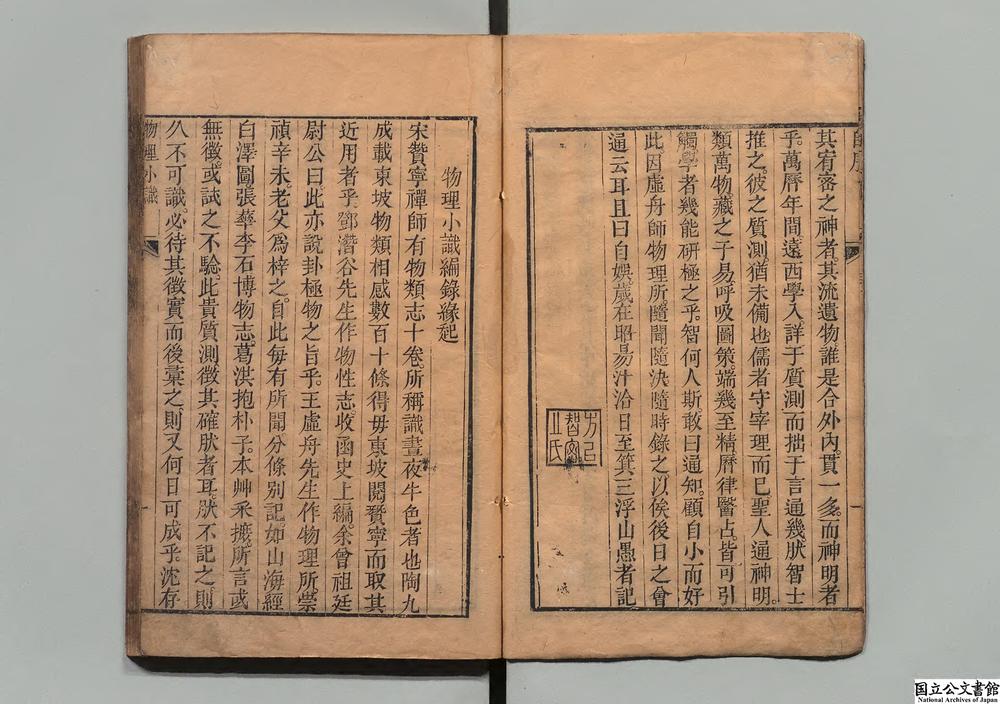 其宥密之神者其流遺物誰是合外內貫一多而神明者
乎萬曆年間遠西學入詳于質測而拙于言通幾狀智士
推之彼之質測猶未備也儒者守宰理而已聖人通神明
類萬物藏之于易呼吸圖策端幾至精曆律醫占皆可引
觸學者幾能研極之乎智何人斯敢曰通知顧自小而好
此因虛舟師物理所隨聞隨決隨時錄之以俟後日之會
通云耳且曰自娛歲在昭昜汁洽日至箕三浮山愚者記
物理小識編錄緣起
宋贊寧禪師有物類志十卷所稱識晝夜牛色者也陶九
成載東坡物類相感數百十條得毋東坡閱贊寧而取其
近用者乎鄧潛谷先生作物性志收函史上編余曾祖廷
尉公曰此亦說卦極物之旨乎王虛舟先生作物理所崇
禎辛未老父爲梓之自此每有所聞分條別記如山海經
白澤圖張華李石博物志葛洪抱朴子本艸采摭所言或
無徵或試之不驗此貴質測徵其確肰者耳肰不記之則
久不可識必待其徵實而後彚之則又何日可成乎沈存
物理小識
一
国立公文書館
National Archives of Japan